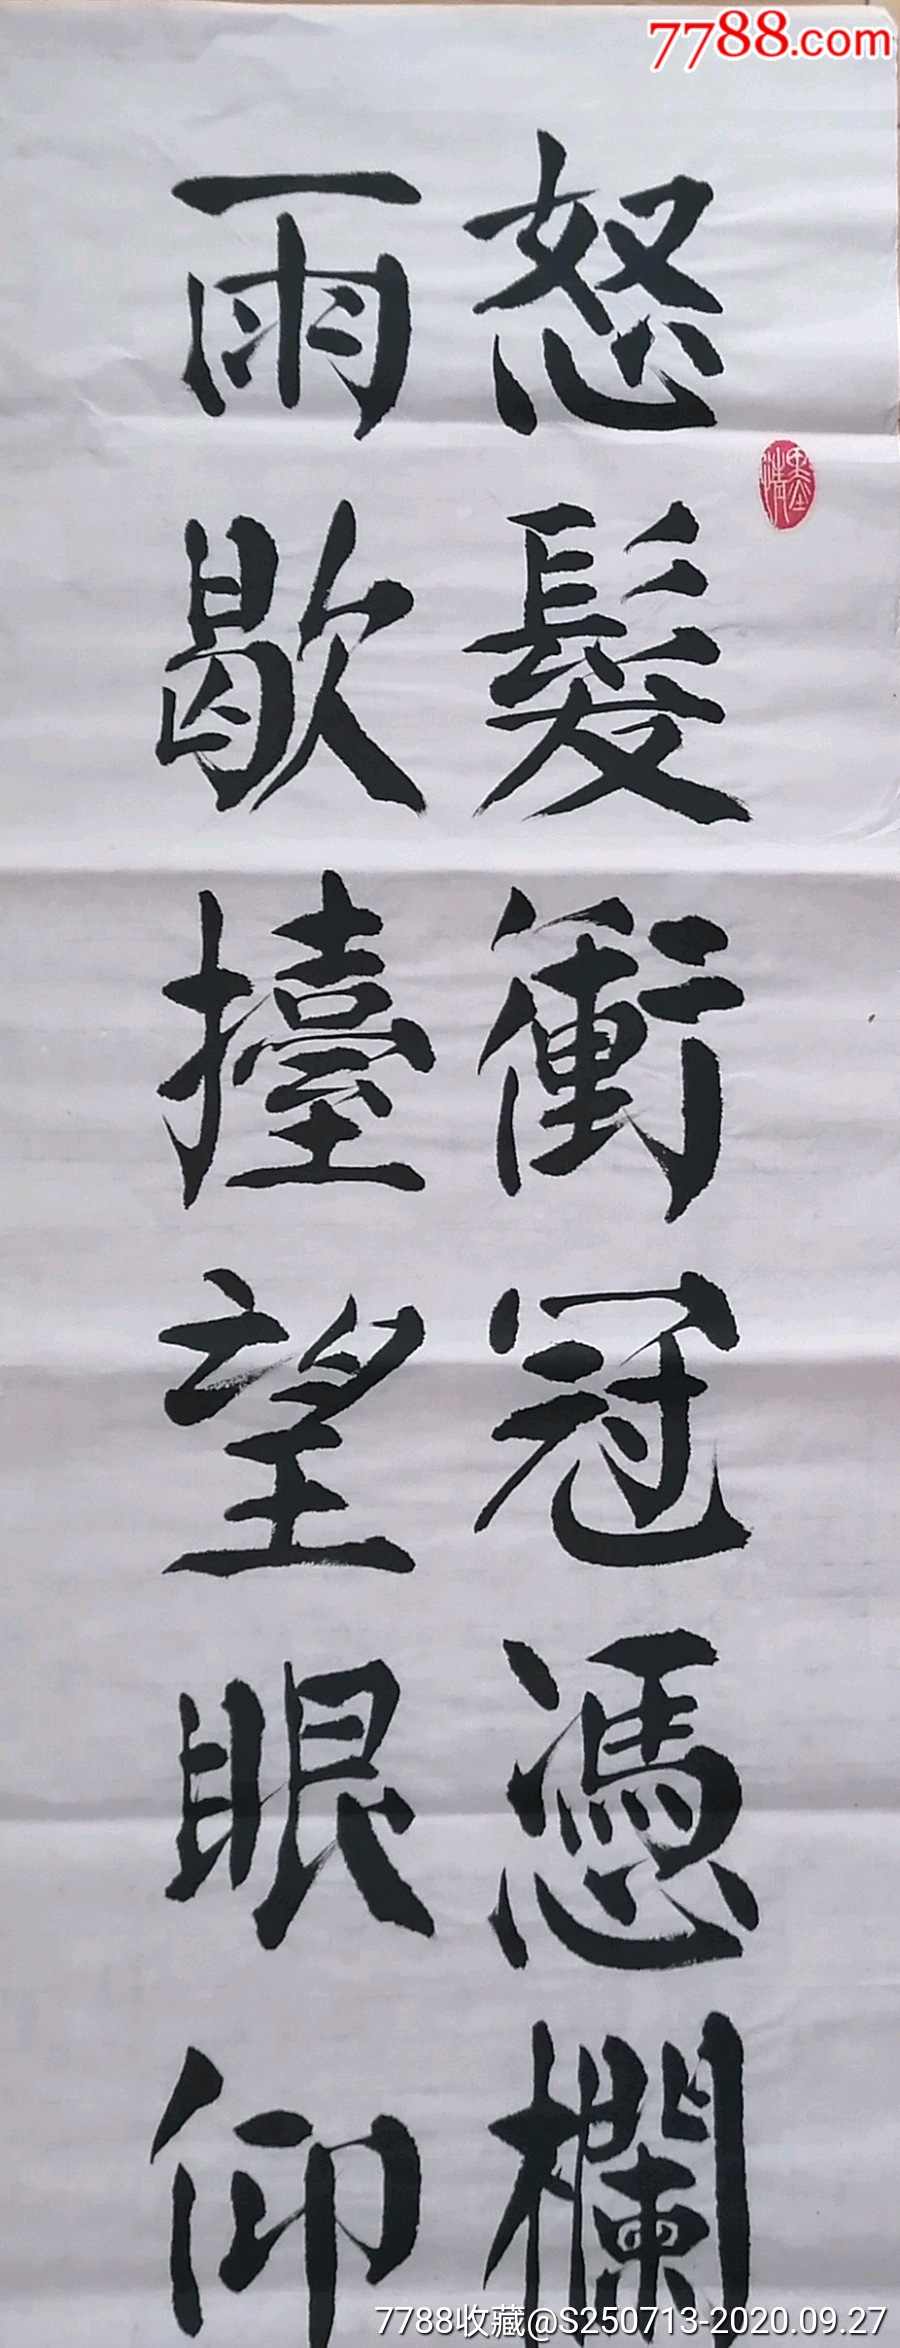 7788.com
怒髮衝冠憑欄
雨歇擡望眼仰
墨情
7788收藏@S250713-2020.09.27